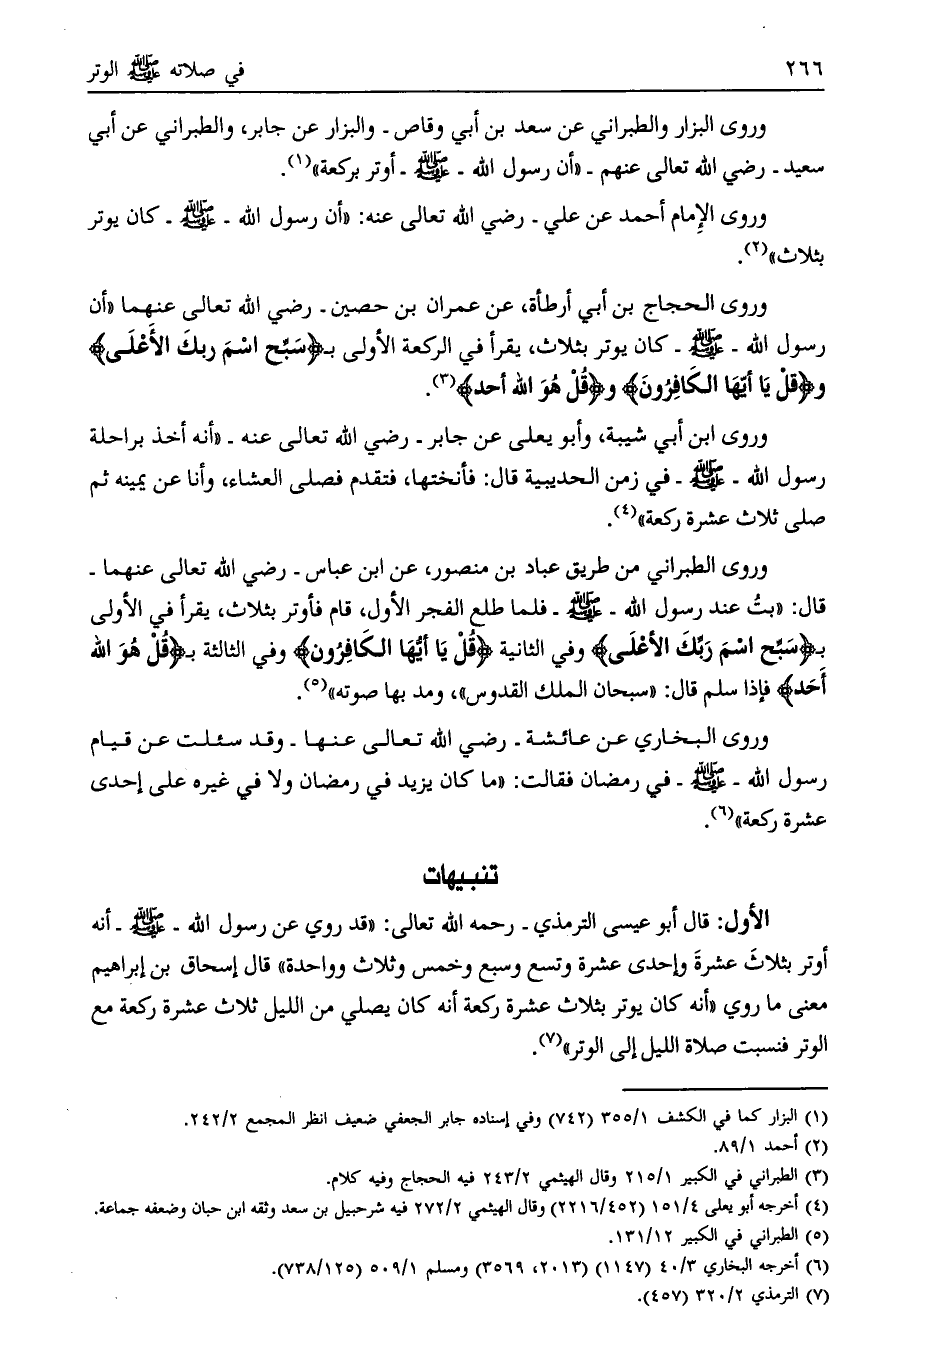 ٢٦٦ في صلاته ﷺ الوتر
وروى البزار والطبراني عن سعد بن أبي وقاص ـ والبزار عن جابر، والطبراني عن أبي
سعيد ـ رضي الله تعالى عنهم ـ «أن رسول الله ـ ﷺ ـ أوتر بركعة»(١).
وروى الإمام أحمد عن علي ـ رضي الله تعالى عنه: «أن رسول الله ـ ﷺ ـ كان يوتر
بثلاث»(٢).
وروى الحجاج بن أبي أرطأة، عن عمران بن حصين ـ رضي الله تعالى عنهما «أن
رسول الله ـ ﷺ ـ كان يوتر بثلاث، يقرأ في الركعة الأولى بـ﴿سَبِّح اسْمَ ربكَ الأَعْلَى﴾
و﴿قلْ يَا أيّهَا الكَافِرُونَ﴾ و﴿قُلْ هُوَ الله أحد﴾(٣).
وروى ابن أبي شيبة، وأبو يعلى عن جابر ـ رضي الله تعالى عنه ـ «أنه أخذ براحلة
رسول الله ـ ﷺ ـ في زمن الحديبية قال: فأنختها، فتقدم فصلى العشاء، وأنا عن يمينه ثم
صلى ثلاث عشرة ركعة»(٤).
وروى الطبراني من طريق عباد بن منصور، عن ابن عباس ـ رضي الله تعالى عنهما ـ
قال: «بتُ عند رسول الله ـ ﷺ ـ فلما طلع الفجر الأول، قام فأوتر بثلاث، يقرأ في الأولى
بـ﴿سَبِّح اسْمَ رَبِّكَ الأعْلَى﴾ وفي الثانية ﴿قُلْ يَا أيُّهَا الكَافِرُون﴾ وفي الثالثة بـ﴿قُلْ هُوَ الله
أَحَد﴾ فإذا سلم قال: «سبحان الملك القدوس»، ومد بها صوته»(٥).
وروى البخاري عن عائشة ـ رضي الله تعالى عنها ـ وقد سئلت عن قيام
رسول الله ـ ﷺ ـ في رمضان فقالت: «ما كان يزيد في رمضان ولا في غيره على إحدى
عشرة ركعة»(٦).
تنبيهات
الأول: قال أبو عيسى الترمذي ـ رحمه الله تعالى: «قد روي عن رسول الله ـ ﷺ ـ أنه
أوتر بثلاثَ عشرةَ وإحدى عشرة وتسع وسبع وخمس وثلاث وواحدة» قال إسحاق بن إبراهيم
معنى ما روي «أنه كان يوتر بثلاث عشرة ركعة أنه كان يصلي من الليل ثلاث عشرة ركعة مع
الوتر فنسبت صلاة الليل إلى الوتر»(٧).
(١) البزار كما في الكشف ٣٥٥/١ (٧٤٢) وفي إسناده جابر الجعفي ضعيف انظر المجمع ٢٤٢/٢.
(٢) أحمد ٨٩/١.
(٣) الطبراني في الكبير ٢١٥/١ وقال الهيثمي ٢٤٣/٢ فيه الحجاج وفيه كلام.
(٤) أخرجه أبو يعلى ١٥١/٤ (٢٢١٦/٤٥٢) وقال الهيثمي ٢٧٢/٢ فيه شرحبيل بن سعد وثقه ابن حبان وضعفه جماعة.
(٥) الطبراني في الكبير ١٣١/١٢.
(٦) أخرجه البخاري ٤٠/٣ (١١٤٧) (٢٠١٣، ٣٥٦٩) ومسلم ٥٠٩/١ (٧٣٨/١٢٥).
(٧) الترمذي ٣٢٠/٢ (٤٥٧).